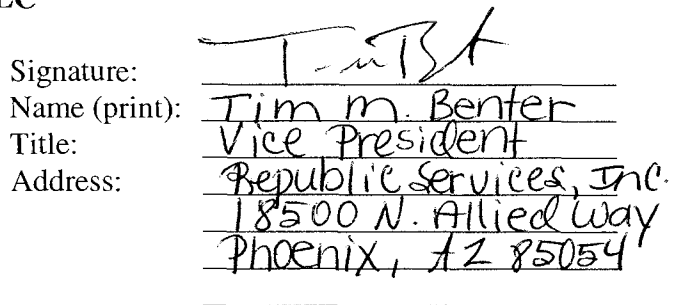 LC
Signature: Tim Bt
Name (print): Tim m. Benter
Title: Vice President
Address: Republic Services, Inc.
18500 N. Allied Way
Phoenix, AZ 85054